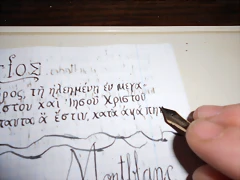 ΙΟΣ
ρος, τῇ ἠλεημένῃ ἐν μεγα-
στου καὶ Ἰησοῦ Χριστοῦ
παντα ἃ ἔστιν, κατὰ ἀγάπη
Montblanc